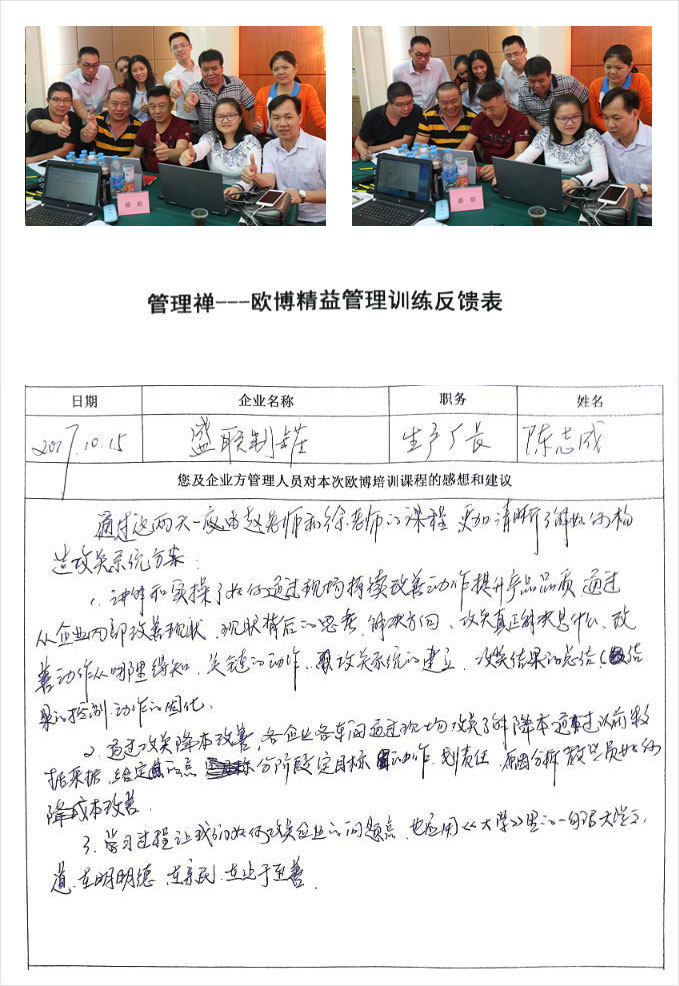 盛联
管理禅---欧博精益管理训练反馈表
日期 企业名称 职务 姓名
2017.10.15 盛联制罐 生产厂长 陈志成
您及企业方管理人员对本次欧博培训课程的感想和建议
通过这两天一夜由赵老师和徐老师的课程 更加清晰了解如何构
造攻关系统方案:
1. 讲解和实操了如何通过现场持续改善动作提升产品品质 通过
从企业内部改善现状、现状背后的思考、解决方向、攻关真正解决是什么、改
善动作从哪里得知、关键的动作、攻关系统的建立、攻关结果的总结(结
果的控制.动作的固化.
2. 通过攻关降本改善,各企业各车间通过现场攻关了解降本通过以前数
据采据,给定 点 分阶段定目标 动作、划责任、原因分析 教学员如何
降成本改善.
3. 学习过程让我们如何攻关企业的问题点 也运用《大学》里的一句话大学之
道.在明明德 在亲民.在止于至善.